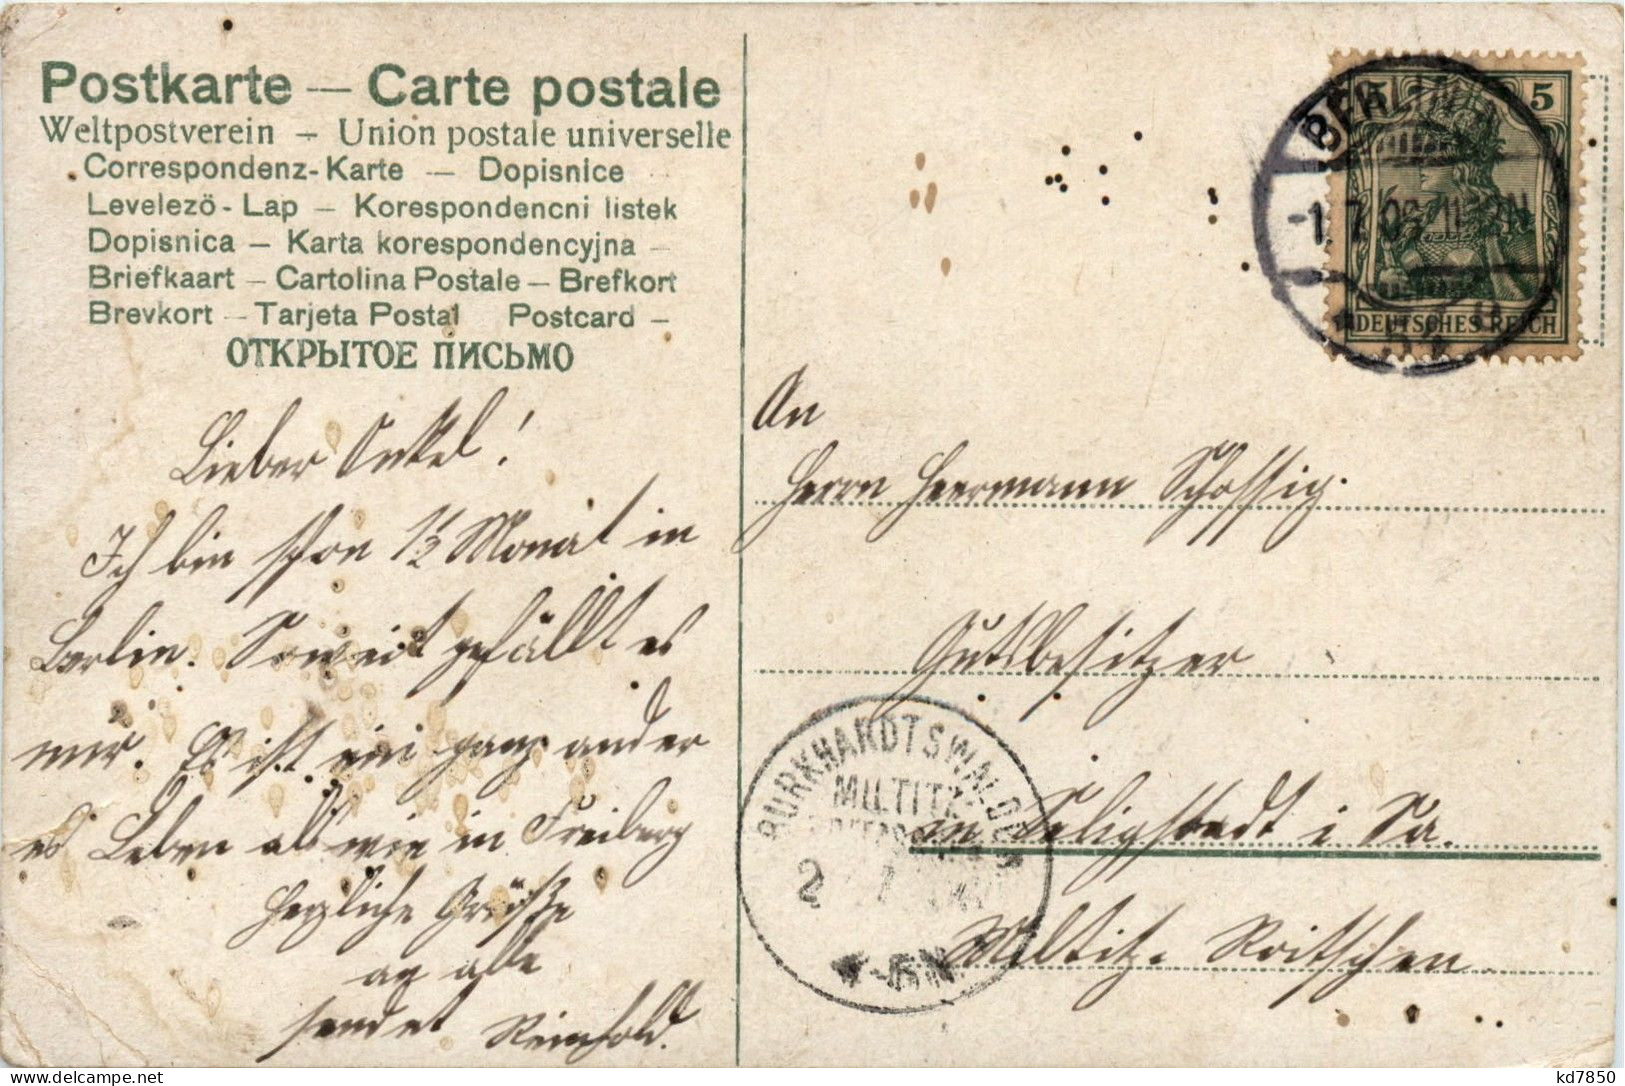 Postkarte — Carte postale
Weltpostverein — Union postale universelle
Correspondenz-Karte — Dopisnice
Levelezö-Lap — Korespondencni listek
Dopisnica — Karta korespondencyjna —
Briefkaart — Cartolina Postale — Brefkort
Brevkort — Tarjeta Postal Postcard —
ОТКРЫТОЕ ПИСЬМО
Lieber Onkel!
Ich bin schon 1½ Monat in
Berlin. Soweit gefällt es
mir. Es ist ein ganz ander
es Leben als wie in Freiberg
Herzliche Grüße
an alle
sendet Reinhold.
5 5
BERLIN
-1.7.09 11-12N
DEUTSCHES REICH
An
Herrn Heermann Schossig.
Gutsbesitzer
in Seligstadt i Sa.
Miltitz-Roitschen
BURKHARDTSWALDE
MILTITZ
2 7
-6N
kd7850